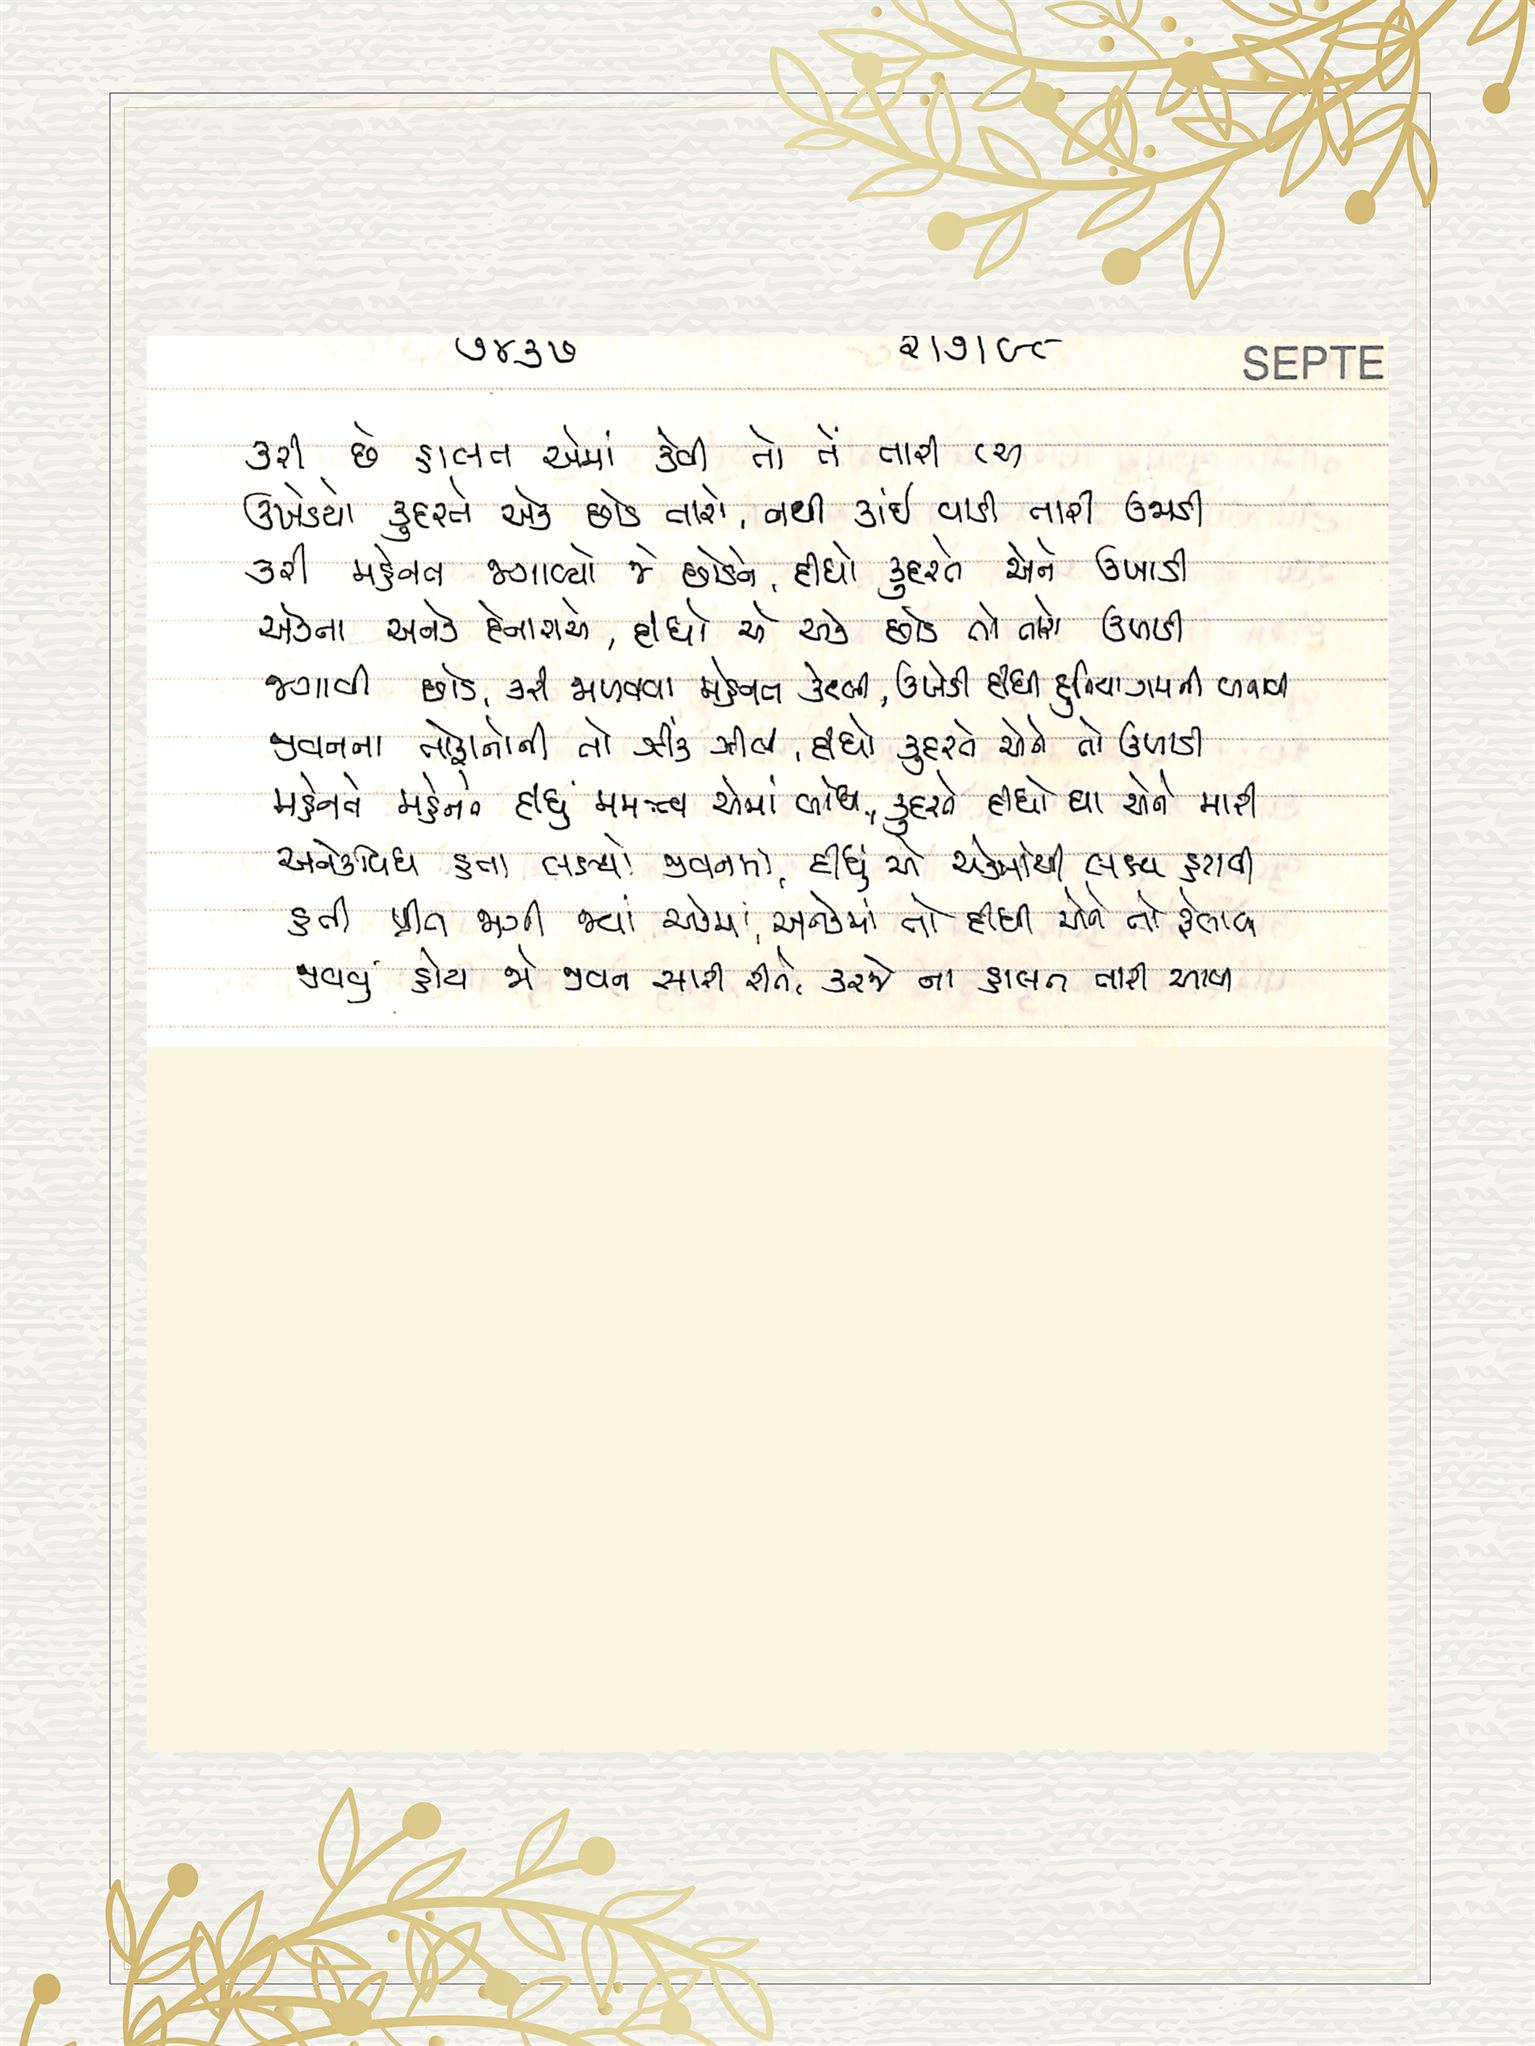 ૭૪૩૭ ૨।૭।૯૮ SEPTE
કરી છે હાલત એમાં કેવી તો તેં તારી
ઉખેડયો કુદરતે એક છોડ તારો, નથી કાંઈ વાડી તારી ઉજડી
કરી મહેનત જગાવ્યો જે છોડને, દીધો કુદરતે એને ઉખાડી
એકના અનેક દેનારાએ, દીધો એ એક છોડ તો તારો ઉખાડી
જગાવી છોડ, કરી જાળવવા મહેનત કેટલી, ઉખેડી દીધી દુનિયા ગમની
જીવનના તોફાનોની તો ઝીંક ઝીલી, દીધો કુદરતે એને તો ઉખાડી
મહેનતે મહેનતે દીધું મમત્વ એમાં બાંધી, કુદરતે દીધો ઘા એને મારી
અનેકવિધ હતા લક્ષ્યો જીવનમાં, દીધું એ એકમાંથી લક્ષ્ય હટાવી
હતી પ્રીત જાગી જ્યાં એકમાં, અનેકમાં તો દીધી એને તો ફેલાવી
જીવવું હોય જો જીવન સારી રીતે, કરજે ના હાલત તારી આવી